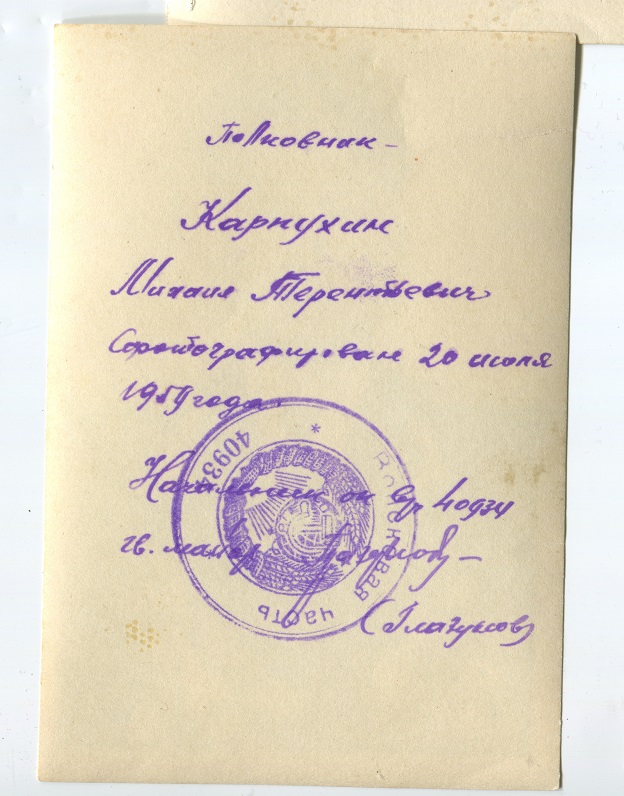 Полковник -
Карпухин
Михаил Терентьевич
Сфотографирован 20 июля
1959 года.
Начальник ок в/ч 40934
гв. майор
(Глазунов)
Войсковая часть * 40934